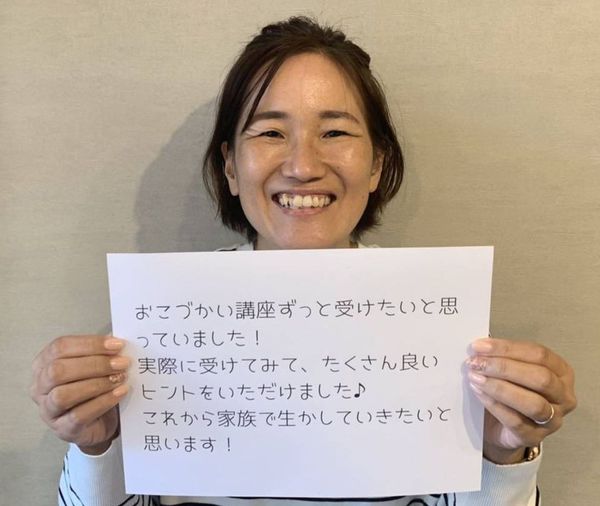 おこづかい講座ずっと受けたいと思
っていました！
実際に受けてみて、たくさん良い
ヒントをいただけました♪
これから家族で生かしていきたいと
思います！